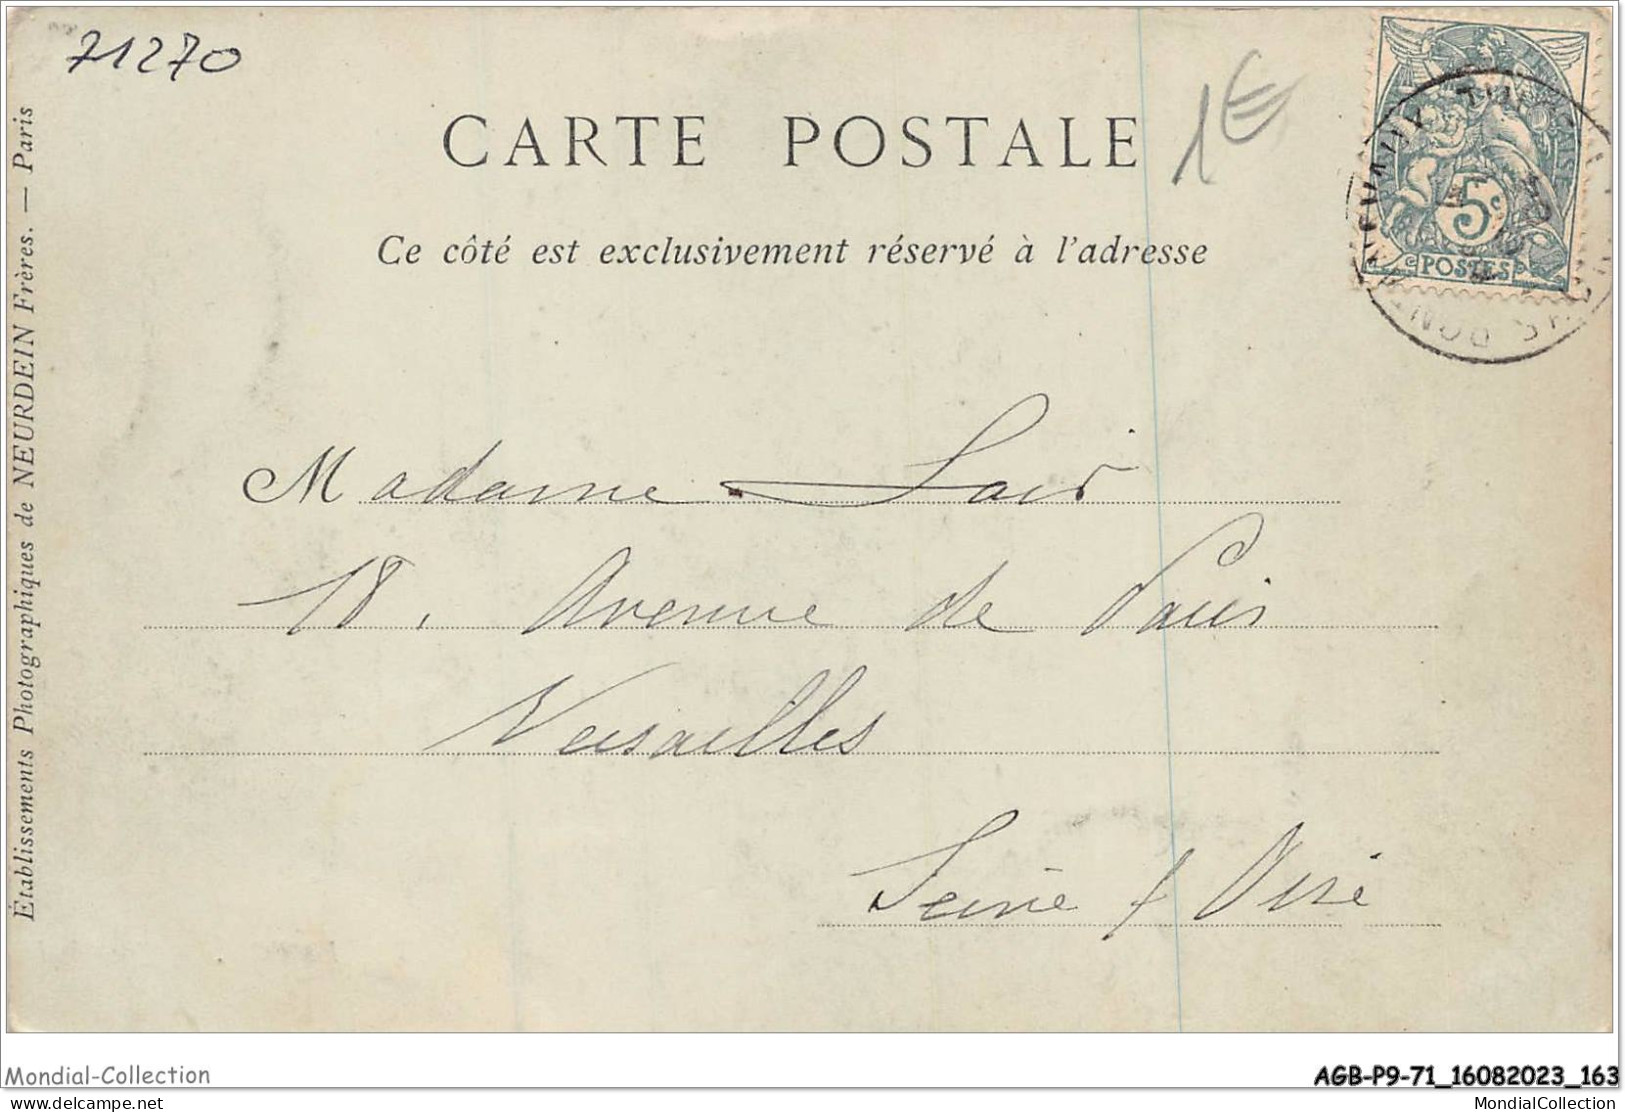 71270
CARTE POSTALE
1€
Ce côté est exclusivement réservé à l'adresse
5c
POSTES
Établissements Photographiques de NEURDEIN Frères. — Paris
Madame Lair
18, Avenue de Paris
Versailles
Seine & Oise
Mondial-Collection
AGB-P9-71_16082023_163
delcampe.net
MondialCollection